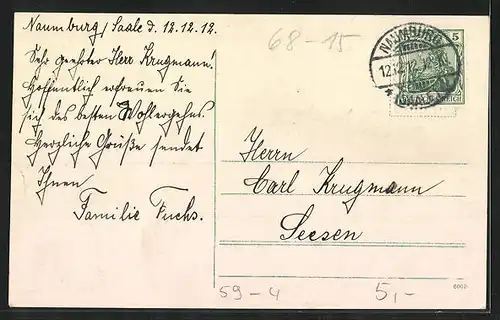 Naumburg/Saale d. 12.12.12.
Sehr geehrter Herr Krugmann!
Hoffentlich erfreuen Sie
sich des besten Wohlergehns.
Herzliche Grüße sendet
Ihnen
Familie Fuchs.
68-15
NAUMBURG
5
Herrn
Carl Krugmann
Seesen
59-4
5,-